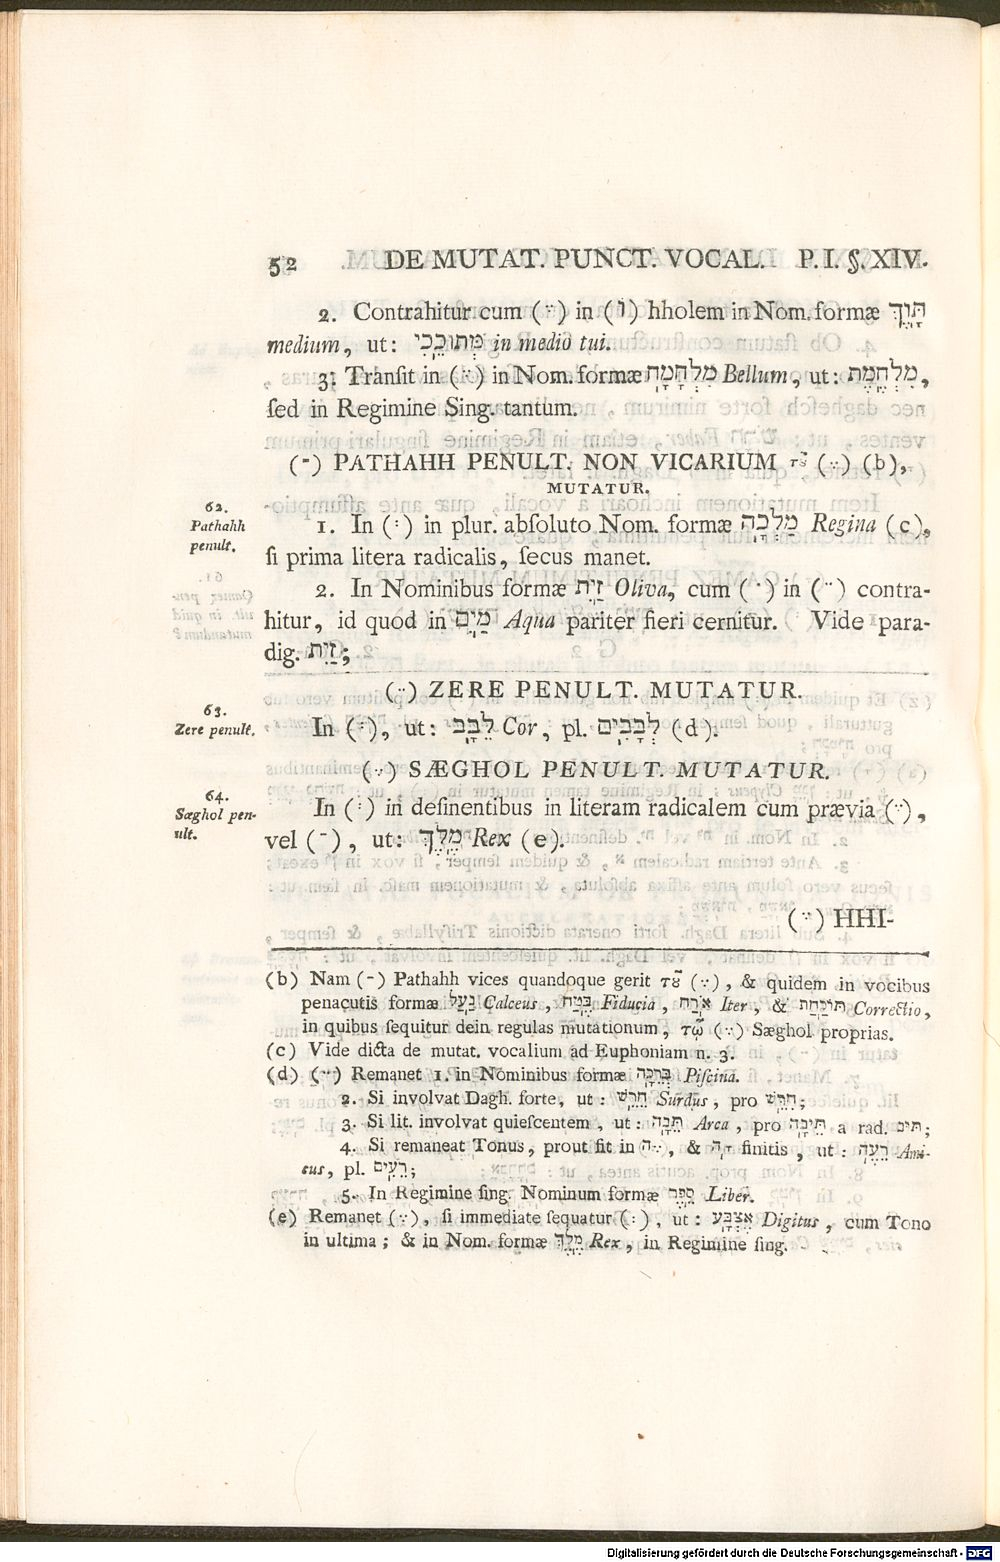 52 DE MUTAT. PUNCT. VOCAL. P. I. §. XIV.
2. Contrahitur cum (ֶ) in (וֹ) hholem in Nom. formæ תָּוֶךְ
medium, ut: מְתוֹכֵכִי in medio tui.
3. Transit in (ֶ) in Nom. formæ מִלְחָמָה Bellum, ut: מִלְחֶמֶת,
ſed in Regimine Sing. tantum.
(ַ) PATHAHH PENULT. NON VICARIUM τȣ͂ (ֶ) (b),
MUTATUR.
62.
Pathahh
penult.
1. In (ְ) in plur. abſoluto Nom. formæ מַלְכָּה Regina (c),
ſi prima litera radicalis, ſecus manet.
2. In Nominibus formæ זַיִת Oliva, cum (ִ) in (ֵ) contra-
hitur, id quod in מַיִם Aqua pariter fieri cernitur. Vide para-
dig. זַיִת;
(ֵ) ZERE PENULT. MUTATUR.
63.
Zere penult.
In (ְ), ut: לֵבָב Cor, pl. לְבָבִים (d).
(ֶ) SÆGHOL PENULT. MUTATUR.
64.
Sæghol pen-
ult.
In (ְ) in deſinentibus in literam radicalem cum prævia (ֶ),
vel (ַ), ut: מֶלֶךְ Rex (e).
(ֶ) HHI-
(b) Nam (ַ) Pathahh vices quandoque gerit τȣ͂ (ֶ), & quidem in vocibus
penacutis formæ נַעַל Calceus, בֶּטַח Fiducia, אֹרַח Iter, & תּוֹכַחַת Correctio,
in quibus ſequitur dein regulas mutationum, τῷ (ֶ) Sæghol proprias.
(c) Vide dicta de mutat. vocalium ad Euphoniam n. 3.
(d) (ֵ) Remanet 1. in Nominibus formæ בְּרֵכָה Piſcina.
2. Si involvat Dagh. forte, ut: חֵרֵשׁ Surdus, pro חִרֵּשׁ;
3. Si lit. involvat quieſcentem, ut: תֵּבָה Arca, pro תֵּיבָה a rad. תיב;
4. Si remaneat Tonus, prout fit in ֶה, & ָה finitis, ut: רֵעֶה Ami-
cus, pl. רֵעִים;
5. In Regimine ſing. Nominum formæ סֵפֶר Liber.
(e) Remanet (ֶ), ſi immediate ſequatur (ְ), ut: אֶצְבַּע Digitus, cum Tono
in ultima; & in Nom. formæ מֶלֶךְ Rex, in Regimine ſing.
Digitalisierung gefördert durch die Deutsche Forschungsgemeinschaft - DFG